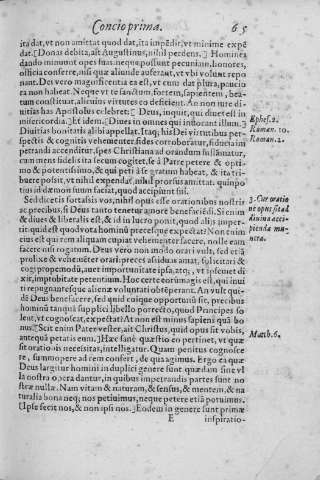 Concio prima. 65
ita dat, vt non amittat quod dat, ita impēdit, vt minime expē
dat. [Donas debita, ait Augustinus, nihil perdens.] Homines
dando minuunt opes suas. neque possunt pecuniam, honores,
officia conferre, nisi quæ aliunde auferant, vt vbi volunt repo
nant. Dei vero magnificentia ea est, vt cum dat plura, paucio
ra non habeat. Neque vt te sanctum, fortem, sapientem, bea-
tum constituat, alicuius virtutes co deficient. An non iure di-
uitias has Apostolus celebret: [Deus, inquit, qui diues est in
misericordia.] Et idem. [Diues in omnes qui inuocant illum.]
Diuitias bonitatis alibi appellat. Itaq; his Dei virtutibus per-
spectis & cognitis vehementer fides corroboratur, fiducia im
petrandi accenditur, spes Christiana ad orandum
cum mens fidelis ita secum cogitet, se à Patre petere & opti-
mo & potentissimo, & qui peti à se gratum habeat, & ita tri-
buere possit, vt nihil expendat, nihil prorsus amittat. quinpo
tius id ad eum suum faciat, quod accipiunt sui.
Sed dicetis fortassis vos, nihil opus esse orationibus nostris
ac precibus, si Deus tanto tenetur ignore beneficiēdi. Si enim
& diues & liberalis est, & id in luero ponit, quod alijs imper-
tit quid est quod vota hominū precesque expectat? Non enim
eius est qui rem aliquam cupiat vehementer facere, nolle eam
facere nisi rogatum. Deus vero non modo orari vult, sed etiā
prolixe & vehemēter orari: preces assiduas amat, sollicitari &
cogi propemodū, auet importunitate ipsa, atq; , vt ipsemet di
xit, improbitate petentium. Hoc certe eorū magis est, qui inui
ti repugnantesque alienæ voluntati obtēperant. An vult qui-
dē Deus benefacere, sed quid cuique opportunū sit, precibus
hominū tanquā supplici libello porrecto, quod Principes so
lent, vt cognoscat, expectat? At non est minus sapiens quā bo
nus. [Scit enim Pater vester, ait Christus, quid opus sit vobis,
antequā petatis eum.] Hæc sanè quæstio eo pertinet, vt quæ
sit orationis necessitas, intelligatur. Quam penitus cognosce
re, summopere ad rem confert, de qua agimus. Ergo ea quæ
Deus largitur homini in duplici genere sunt quædam sine vl
la nostra opera dantur, in quibus impetrandis partes sunt no
stræ nullæ. Nam vitam & naturam, & sensus, & mentem, & na
turalia bona neq; nos petiuimus, neque petere etiā potuimus.
[Ipse fecit nos, & non ipsi nos.] Eodem in genere sunt primæ
E inspiratio-
Ephes. 2.
Roman. 10.
Roman. 2.
3. Cur oratio
ne opus sit ad
diuina acci-
pienda mu-
nera.
Matth. 6.